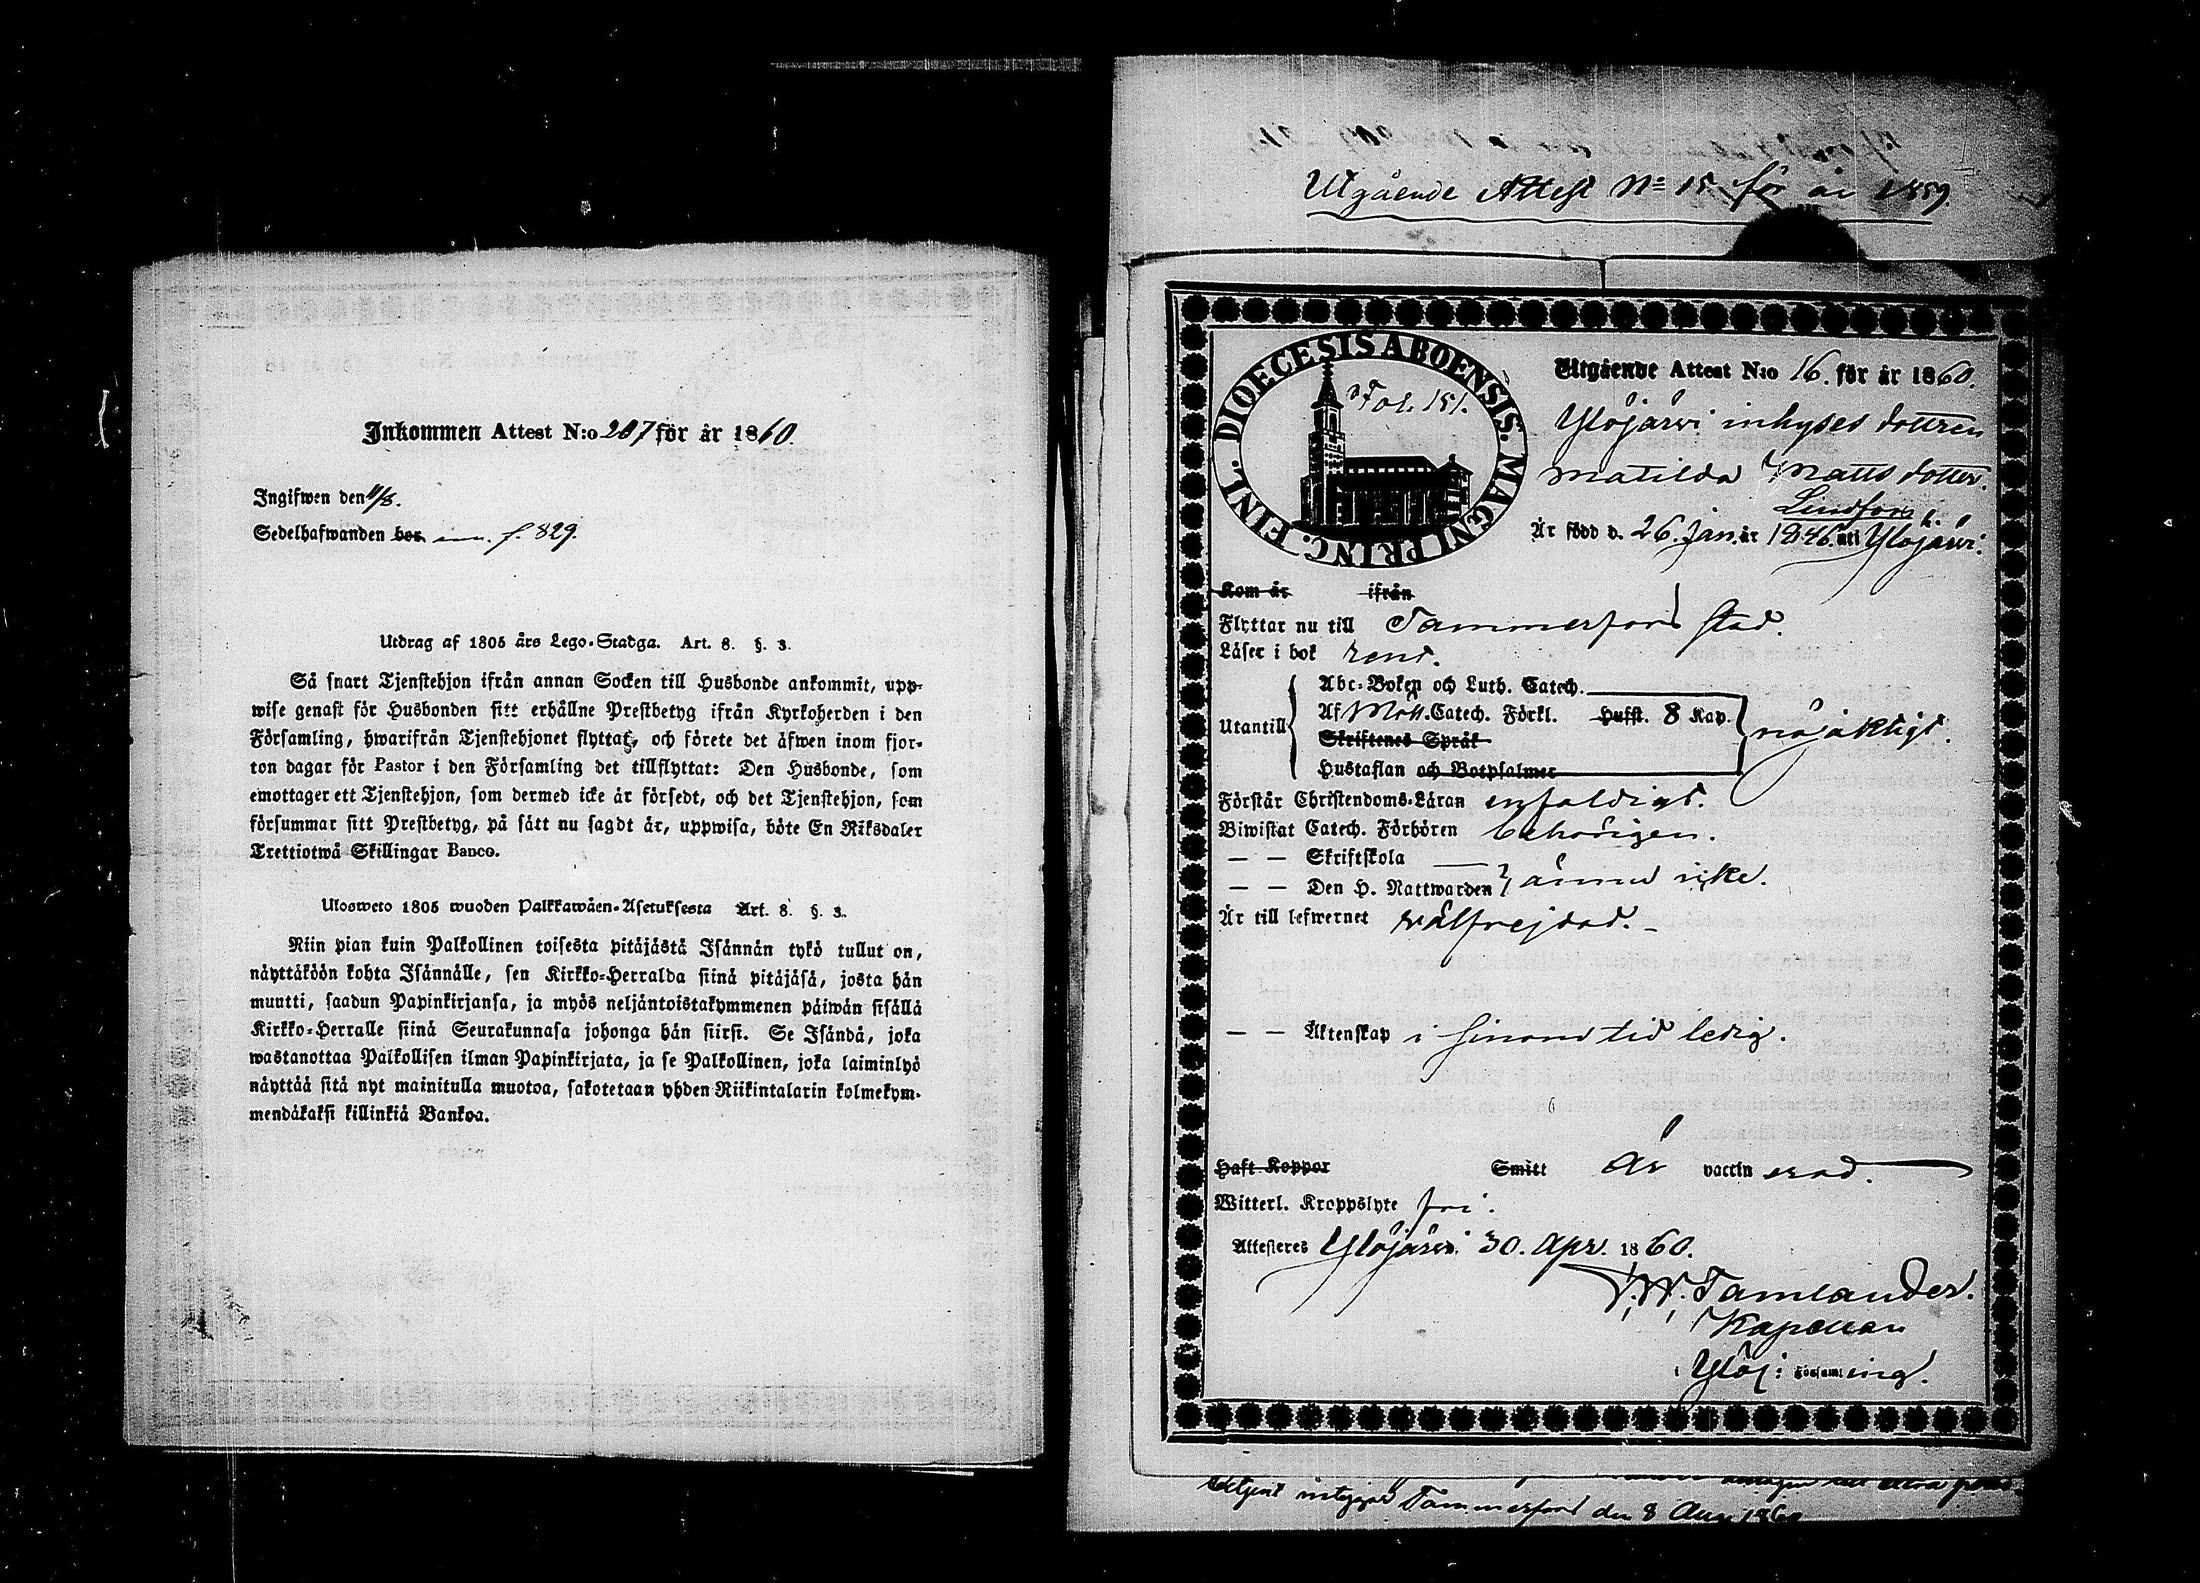 Inkommen Attest N:o 207 för år 1860.
Ingifwen den 11/8.
Sedelhafwanden bor inn. f. 829.
Utdrag af 1805 års Lego-Stadga. Art. 8. §. 3.
Så snart Tjenstehjon ifrån annan Socken till Husbonde ankommit, upp-
wise genast för Husbonden sitt erhållne Prestbetyg ifrån Kyrkoherden i den
Församling, hwarifrån Tjenstehjonet flyttat, och förete det äfwen inom fjor-
ton dagar för Pastor i den Församling det tillflyttat: Den Husbonde, som
emottager ett Tjenstehjon, som dermed icke är försedt, och det Tjenstehjon, som
försummar sitt Prestbetyg, på sätt nu sagdt är, uppwisa, böte En Riksdaler
Trettiotwå Skillingar Banco.
Ulosweto 1805 wuoden Palkkawäen-Asetuksesta Art. 8. §. 3.
Niin pian kuin Palkollinen toisesta pitäjästä Isännän tykö tullut on,
näyttäköön kohta Isännälle, sen Kirkko-Herralda siinä pitäjäsä, josta hän
muutti, saadun Papinkirjansa, ja myös neljäntoistakymmenen päiwän sisällä
Kirkko-Herralle siinä Seurakunnasa johonga hän siirsi. Se Isändä, joka
wastanottaa Palkollisen ilman Papinkirjata, ja se Palkollinen, joka laiminlyö
näyttää sitä nyt mainitulla muotoa, sakotetaan yhden Riikintalarin kolmekym-
mendäkaksi killinkiä Bankoa.
Utgående Attest No 15 för år 1859.
DIOECESIS ABOENSIS. MAGNI PRINC. FINL.
Fol. 151.
Utgående Attest N:o 16. för år 1860.
Ylöjärvi inhyses dottren
Matilda Matts dotter.
Lindfors
Är född d. 26. Jan. år 1846. uti Ylöjärvi.
Kom år ifrån
Flyttar nu till Tammerfors stad.
Läser i bok rent.
Utantill
Abc-Boken och Luth. Catech.
Af Möll. Catech. Förkl. Hufst. 8 Kap.
Skriftenes Språk
Hustaflan och Botpsalmer
nöjaktigt.
Förstår Christendoms-Läran enfaldigt.
Biwistat Catech. Förhören behörigen.
— — Skriftskola
— — Den H. Nattwarden
ännu icke.
Är till lefwernet wälfrejdad.
— — Äktenskap i sinom tid ledig.
Haft Koppor Smitt Är vaccinerad.
Witterl. Kroppslyte fri.
Attesteres Ylöjärvi 30. Apr. 1860.
Tamlander.
Kapellan
i Ylöj: Församling.
Tammerfors den 8 Aug 1860